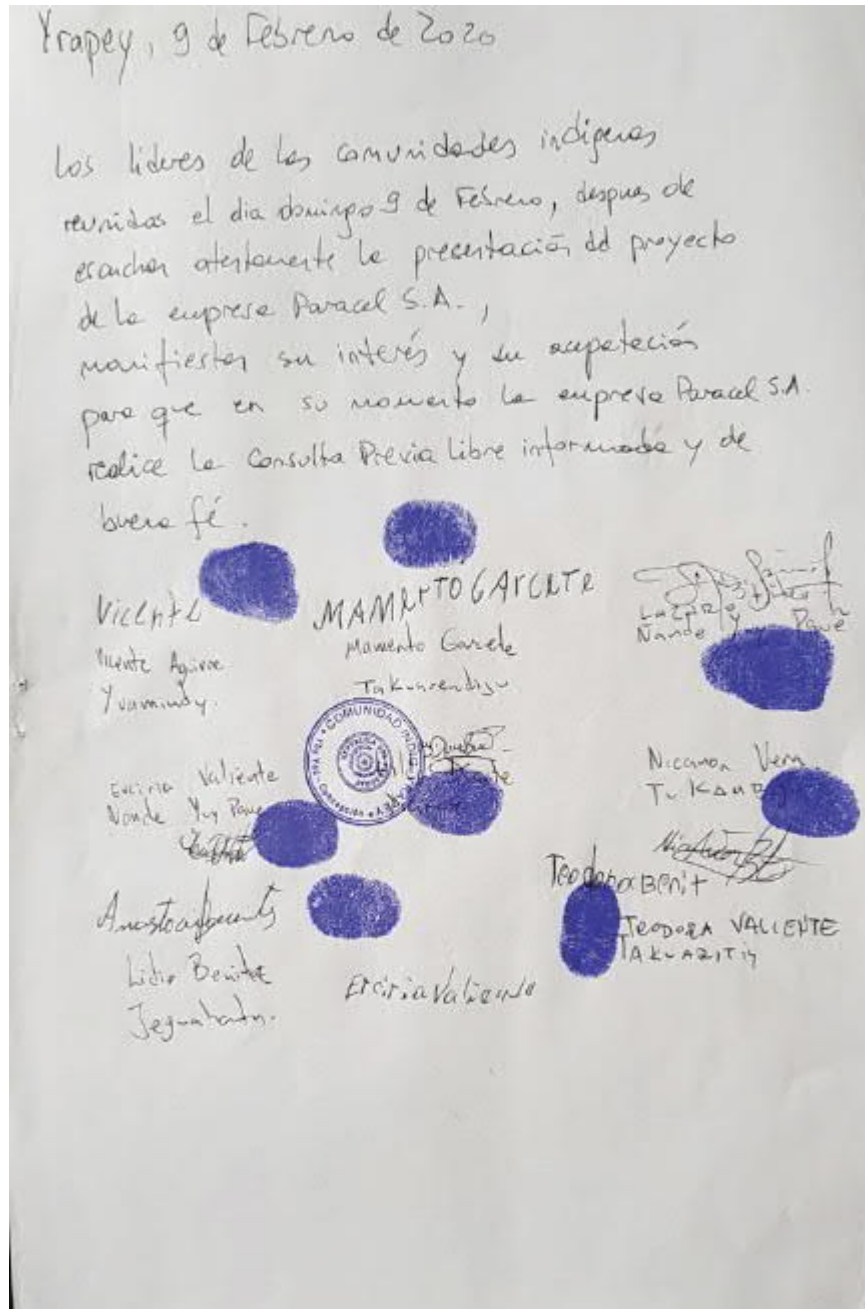 Yrapey, 9 de Febrero de 2020
Los lideres de las comunidades indigenas
reunidas el dia domingo 9 de Febrero, despues de
escuchar atentamente la presentación del proyecto
de la empresa Paracel S.A.,
manifiestan su interés y su acepetación
para que en su momento la empresa Paracel S.A.
realice la Consulta Previa Libre informada y de
buena fé.
Vicente
Vicente Aguirre
Yvamindy.
MAMERTO GARCETE
Mamerto Garcete
Takuarendiju
Lazaro
Ñande Yvy Pave
COMUNIDAD INDIG
Concepción
Enciria Valiente
Ñande Yvy Pave
Nicanor Vera
Lidio Benitez
Jeguahaty.
Erciria Valiente
Teodora Benit
TEODORA VALIENTE
TAKUARITIY